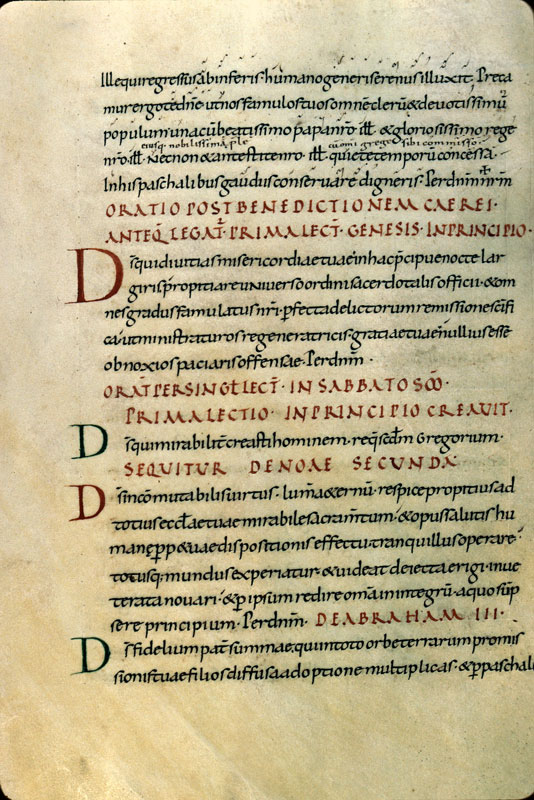 Ille qui regressus ab inferis· humano generi serenus illuxit· Preca
mur ergo te dn̄e ut nos famulos tuos omnē clerū & deuotissimū
populum una cū beatissimo papa nr̄o ill̄ & gloriosissimo rege
eiusq· nobilissima ple cum grege sibi commisso
nr̄o· ill̄ Necnon & antestite nr̄o· ill̄· quiete temporū concessa·
In his paschalibus gaudiis conseruare digneris· Per dnm̄ nrm̄
ORATIO POST BENEDICTIONEM CAEREI·
ANTEQ̄ LEGAT̄· PRIMA LECT̄· GENESIS· IN PRINCIPIO·
Ds̄ qui diuitias misericordiae tuae in hac p̄cipue nocte lar
giris p̄pitiare uniuerso ordini sacerdotalis officii· & om
nes gradus famulatus nr̄i· p̄fecta delictorum remissione sc̄ifi
ca· ut ministraturos regeneratrici· gratiae tuae nullius esse
obnoxios paciaris offensae· Per dnm̄·
ORAT̄ PER SINGL̄ LECT̄· IN SABBATO SC̄O·
PRIMA LECTIO· IN PRINCIPIO CREAUIT·
Ds̄ qui mirabilit̄ creasti hominem· req̄ sedm̄ Gregorium·
SEQUITUR DE NOAE SECUNDA
Ds̄ incōmutabilis uirtus· lum̄ a&ernū· respice propitius ad
totius eccl̄ae tuae mirabile sacram̄tum· & opus salutis hu
manę p̄p&uae dispositionis effectu tranquillus operare·
totusq· mundus experiatur & uideat deiecta erigi· inue
terata nouari· & p̄ ipsum redire om̄a in integrū· a quo sūp
sere principium· Per dnm̄· DE ABRAHAM III·
Ds̄ fidelium pat̄ summae· qui in toto orbe terrarum promis
sionis tuae filios diffusa adoptione multiplicas· & p̄ paschale